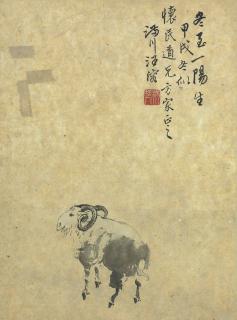 冬至一陽生
甲戌冬似
懷民道兄方家正之
汪溶